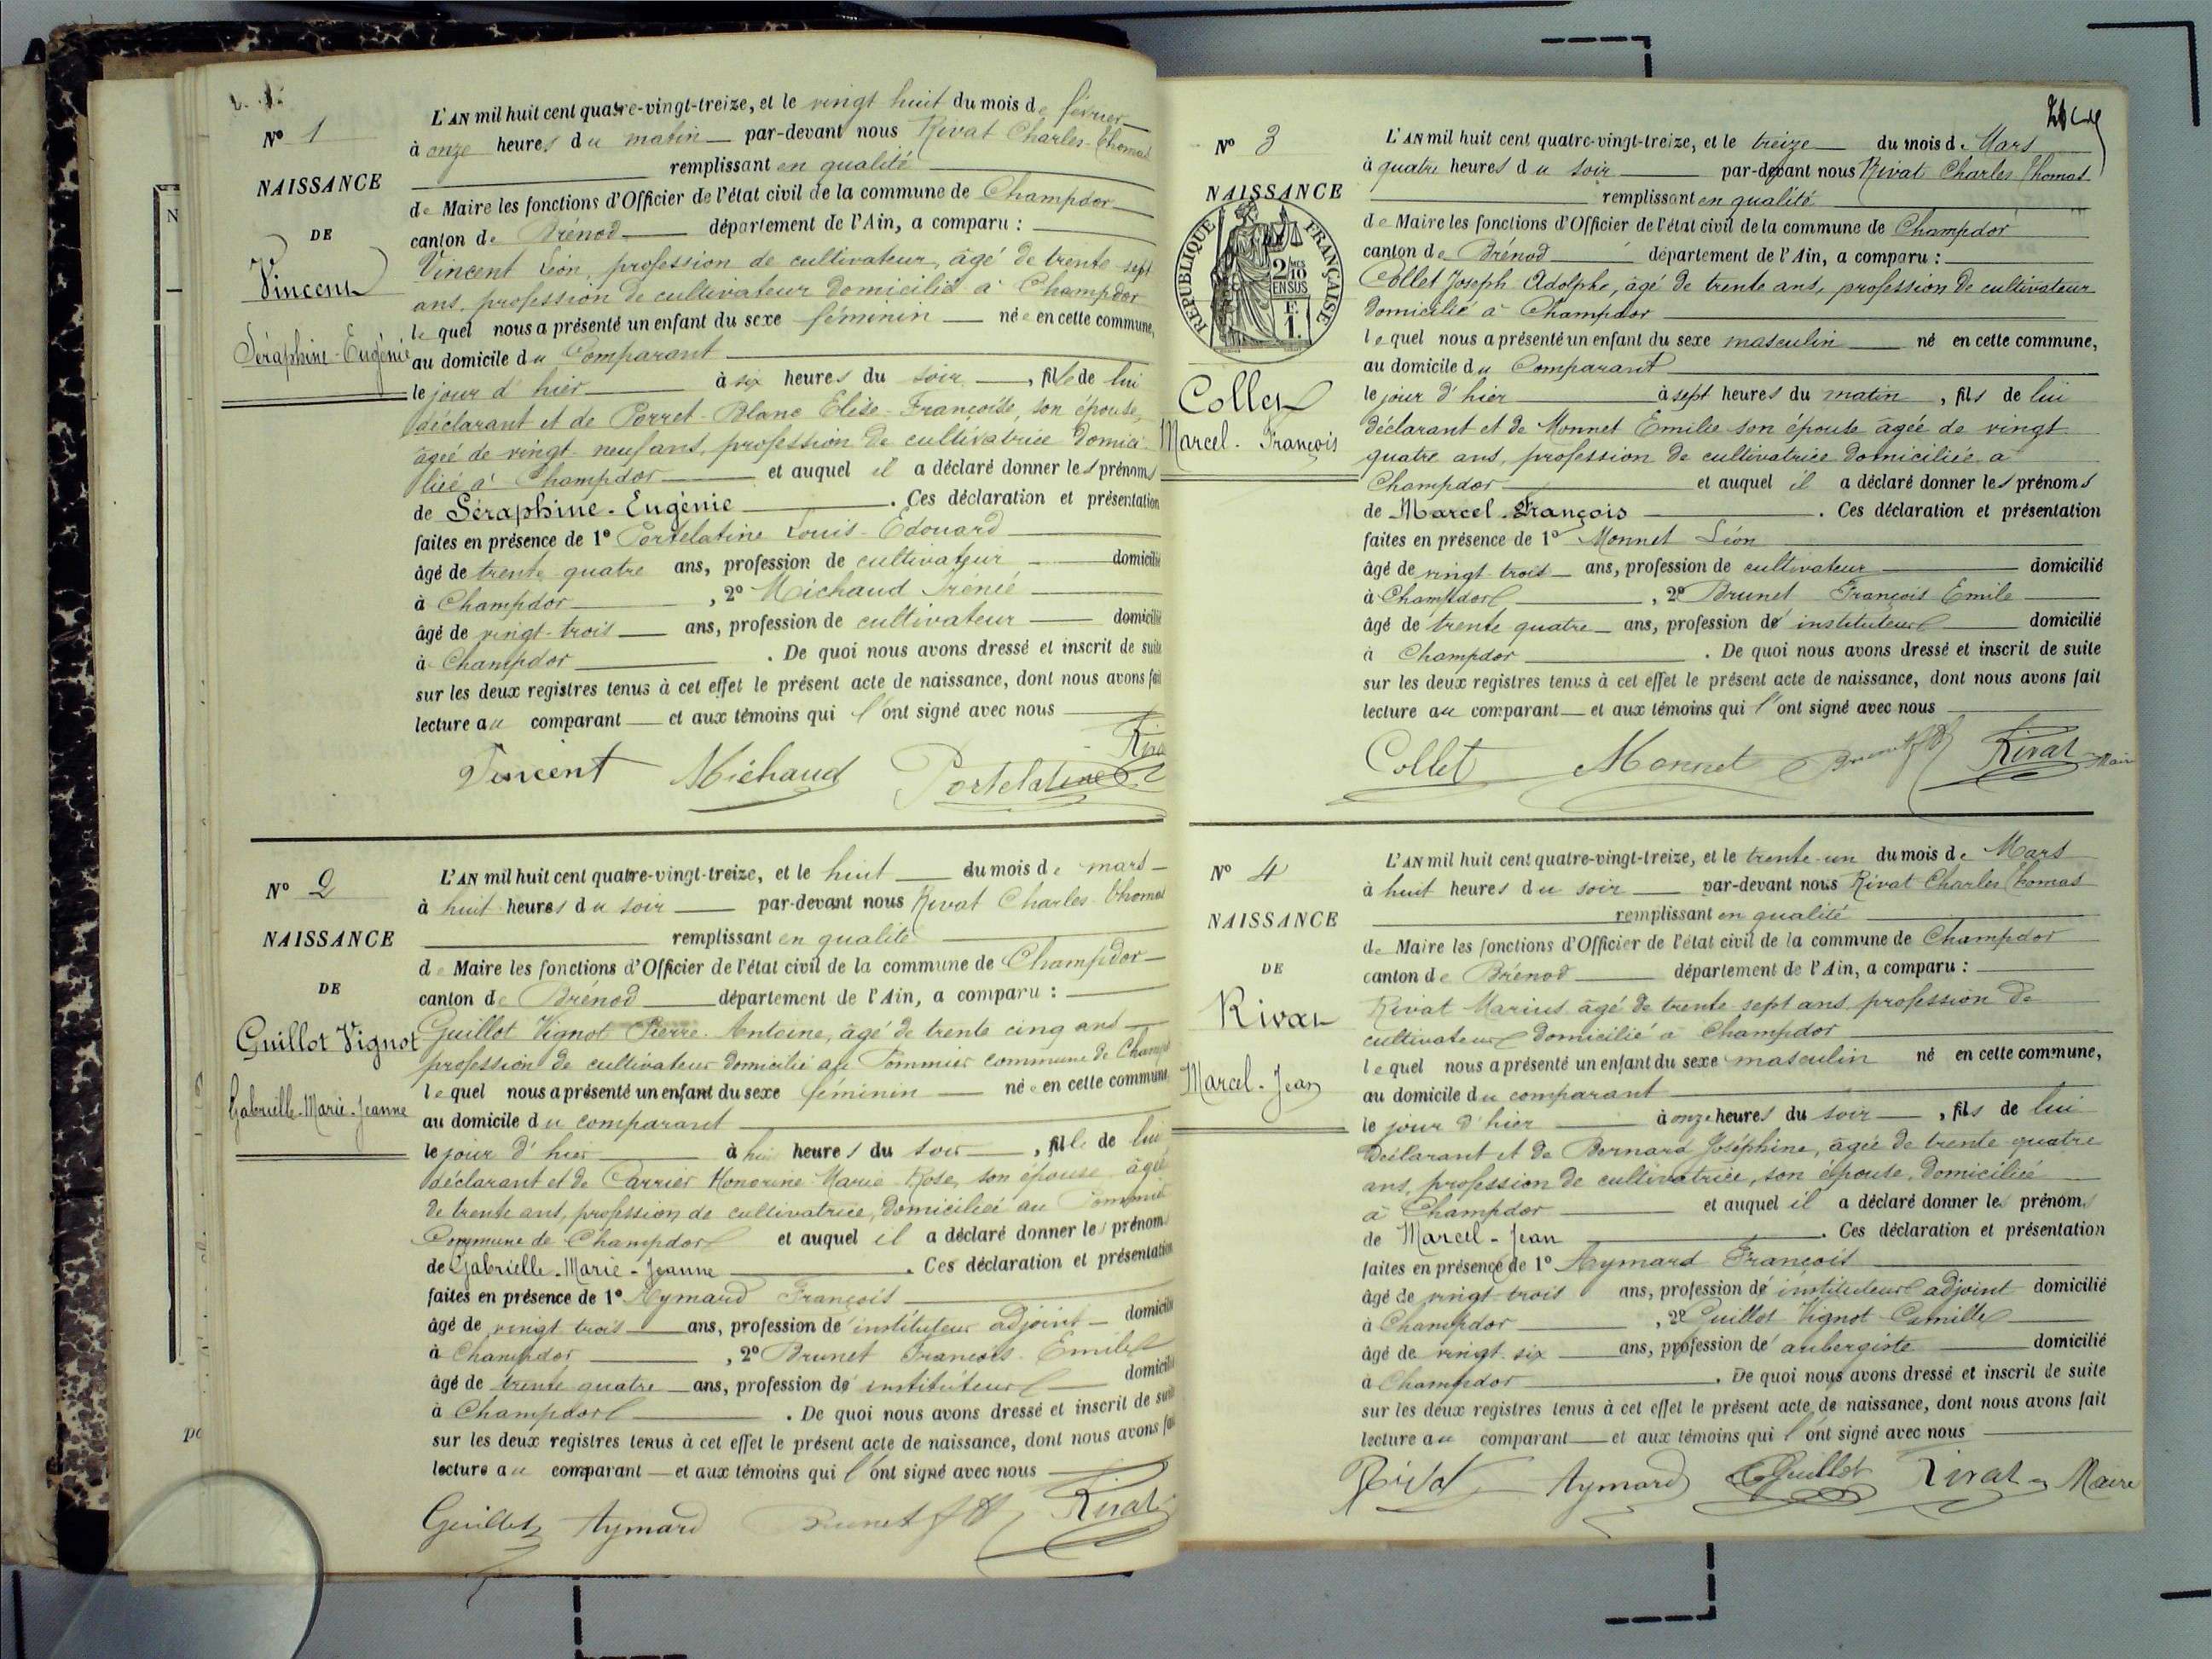 Nº 1
NAISSANCE
DE
Vincent
Séraphine-Eugénie
L'AN mil huit cent quatre-vingt-treize, et le vingt huit du mois de février
à onze heures du matin par-devant nous Rivat Charles-Thomas
remplissant en qualité
de Maire les fonctions d'Officier de l'état civil de la commune de Champdor
canton de Brénod département de l'Ain, a comparu :
Vincent Léon, profession de cultivateur, âgé de trente-sept
ans, profession de cultivateur domicilié à Champdor
lequel nous a présenté un enfant du sexe féminin née en cette commune,
au domicile du Comparant
le jour d'hier à six heures du soir, fille de lui
déclarant et de Porret-Blanc Elise-Françoise, son épouse,
âgée de vingt-neuf ans, profession de cultivatrice domici-
liée à Champdor et auquel il a déclaré donner les prénoms
de Séraphine-Eugénie. Ces déclaration et présentation
faites en présence de 1º Portelatine Louis-Edouard
âgé de trente quatre ans, profession de cultivateur domicilié
à Champdor, 2º Michaud Irénée
âgé de vingt-trois ans, profession de cultivateur domicilié
à Champdor. De quoi nous avons dressé et inscrit de suite
sur les deux registres tenus à cet effet le présent acte de naissance, dont nous avons fait
lecture au comparant et aux témoins qui l'ont signé avec nous
Vincent Michaud Portelatine
Nº 2
NAISSANCE
DE
Guillot Vignot
Gabrielle-Marie-Jeanne
L'AN mil huit cent quatre-vingt-treize, et le huit du mois de mars
à huit heures du soir par-devant nous Rivat Charles-Thomas
remplissant en qualité
de Maire les fonctions d'Officier de l'état civil de la commune de Champdor
canton de Brénod département de l'Ain, a comparu :
Guillot Vignot Pierre-Antoine, âgé de trente cinq ans
profession de cultivateur domicilié au Pommier commune de Champ
lequel nous a présenté un enfant du sexe féminin née en cette commune
au domicile du comparant
le jour d'hier à heures du soir, fille de lui
déclarant et de Carrier Honorine-Marie-Rose, son épouse âgée
de trente ans, profession de cultivatrice, domiciliée au
Commune de Champdor et auquel il a déclaré donner les prénoms
de Gabrielle-Marie-Jeanne. Ces déclaration et présentation
faites en présence de 1º Aymard François
âgé de vingt trois ans, profession de instituteur adjoint domicilié
à Champdor, 2º Brunet François-Emile
âgé de trente quatre ans, profession de instituteur domicilié
à Champdor. De quoi nous avons dressé et inscrit de suite
sur les deux registres tenus à cet effet le présent acte de naissance, dont nous avons fait
lecture au comparant et aux témoins qui l'ont signé avec nous
Guillot Aymard Brunet Rivat
Nº 3
NAISSANCE
RÉPUBLIQUE FRANÇAISE
2/10 MES
EN SUS
1 F.
Collet
Marcel-François
L'AN mil huit cent quatre-vingt-treize, et le treize du mois de Mars
à quatre heures du soir par-devant nous Rivat Charles Thomas
remplissant en qualité
de Maire les fonctions d'Officier de l'état civil de la commune de Champdor
canton de Brénod département de l'Ain, a comparu :
Collet Joseph-Adolphe, âgé de trente ans, profession de cultivateur
domicilié à Champdor
lequel nous a présenté un enfant du sexe masculin né en cette commune,
au domicile du Comparant
le jour d'hier à sept heures du matin, fils de lui
déclarant et de Monnet Emilie son épouse âgée de vingt
quatre ans, profession de cultivatrice domiciliée à
Champdor et auquel il a déclaré donner les prénoms
de Marcel-François. Ces déclaration et présentation
faites en présence de 1º Monnet Léon
âgé de vingt-trois ans, profession de cultivateur domicilié
à Champdor, 2º Brunet François Emile
âgé de trente quatre ans, profession de instituteur domicilié
à Champdor. De quoi nous avons dressé et inscrit de suite
sur les deux registres tenus à cet effet le présent acte de naissance, dont nous avons fait
lecture au comparant et aux témoins qui l'ont signé avec nous
Collet Monnet Brunet Rivat Maire
Nº 4
NAISSANCE
DE
Rivat
Marcel-Jean
L'AN mil huit cent quatre-vingt-treize, et le trente-un du mois de Mars
à huit heures du soir par-devant nous Rivat Charles Thomas
remplissant en qualité
de Maire les fonctions d'Officier de l'état civil de la commune de Champdor
canton de Brénod département de l'Ain, a comparu :
Rivat Marius âgé de trente sept ans profession de
cultivateur domicilié à Champdor
lequel nous a présenté un enfant du sexe masculin né en cette commune,
au domicile du comparant
le jour d'hier à onze heures du soir, fils de lui
Déclarant et de Bernard Joséphine, âgée de trente-quatre
ans, profession de cultivatrice, son épouse, domiciliée
à Champdor et auquel il a déclaré donner les prénoms
de Marcel-Jean. Ces déclaration et présentation
faites en présence de 1º Aymard François
âgé de vingt-trois ans, profession de instituteur adjoint domicilié
à Champdor, 2º Guillot Vignot Camille
âgé de vingt-six ans, profession de aubergiste domicilié
à Champdor. De quoi nous avons dressé et inscrit de suite
sur les deux registres tenus à cet effet le présent acte de naissance, dont nous avons fait
lecture au comparant et aux témoins qui l'ont signé avec nous
Rivat Aymard Guillot Rivat Maire